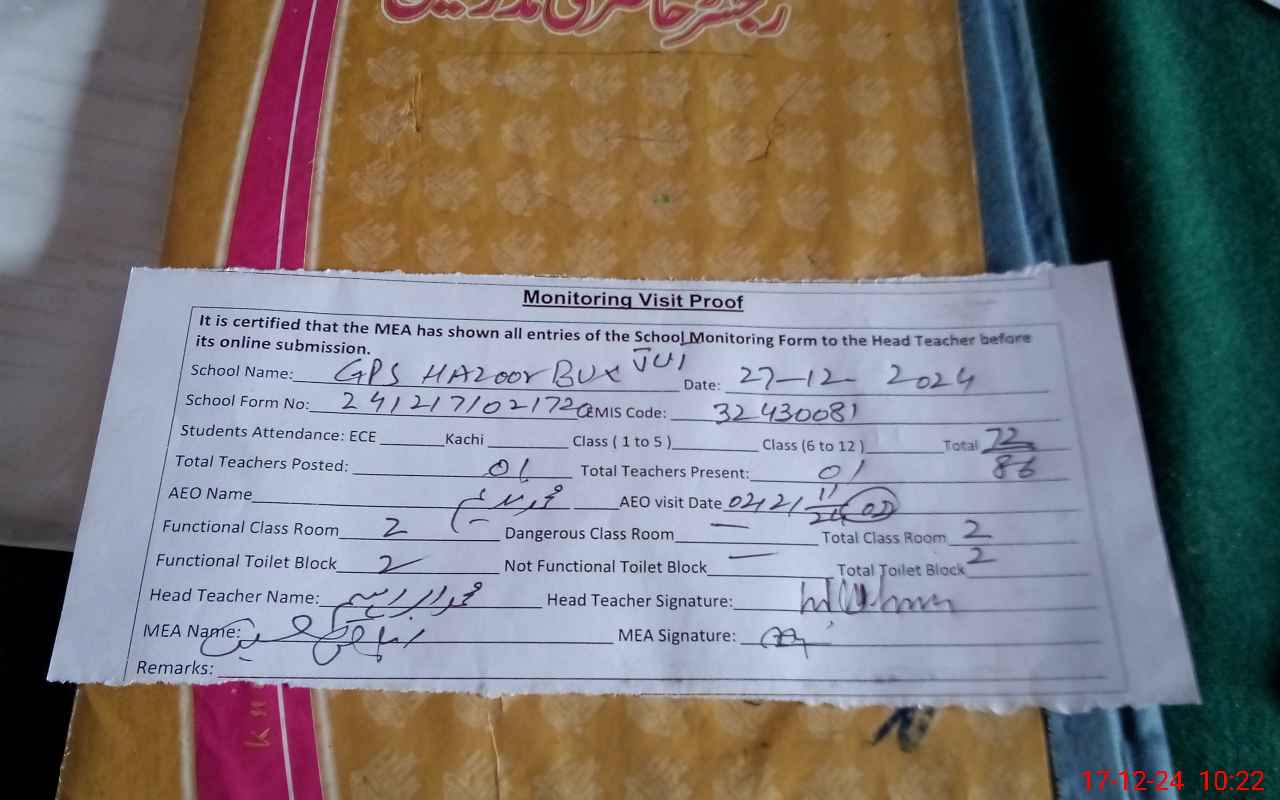 رجسٹر حاضری مدرسین
Monitoring Visit Proof
It is certified that the MEA has shown all entries of the School Monitoring Form to the Head Teacher before
its online submission.
School Name: GPS HAZOOR BUX JUI Date: 27-12 2024
School Form No: 241217102172 EMIS Code: 32430081
Students Attendance: ECE Kachi Class ( 1 to 5 ) Class (6 to 12 ) Total 72
86
Total Teachers Posted: 01 Total Teachers Present: 01
AEO Name AEO visit Date 02, 2, 11 24 02
Functional Class Room 2 Dangerous Class Room — Total Class Room 2
Functional Toilet Block 2 Not Functional Toilet Block — Total Toilet Block 2
Head Teacher Name: محمد ابراہیم Head Teacher Signature:
MEA Name: MEA Signature:
Remarks:
17-12-24 10:22